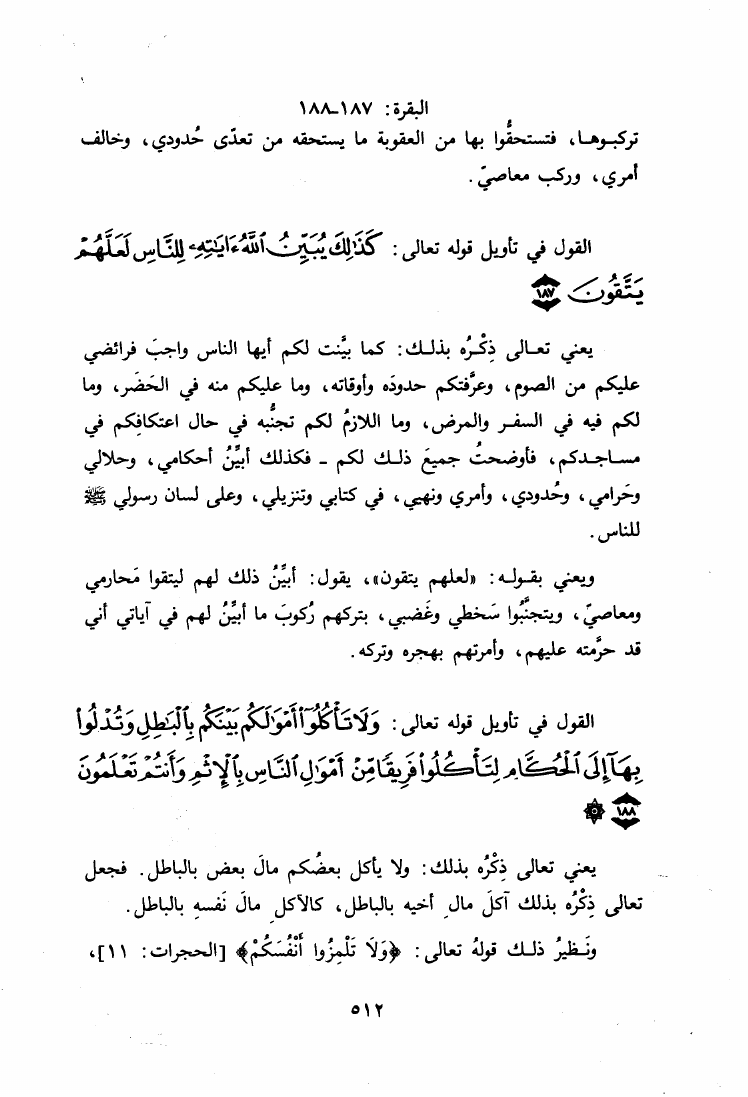 البقرة: ١٨٧-١٨٨
تركبوها، فتستحقُّوا بها من العقوبة ما يستحقه من تعدّى حُدودي، وخالف
أمري، وركب معاصيّ.
القول في تأويل قوله تعالى: كَذَٰلِكَ يُبَيِّنُ ٱللَّهُ ءَايَٰتِهِۦ لِلنَّاسِ لَعَلَّهُمْ
يَتَّقُونَ ١٨٧
يعني تعالى ذِكْرُه بذلك: كما بيَّنت لكم أيها الناس واجبَ فرائضي
عليكم من الصوم، وعرَّفتكم حدودَه وأوقاته، وما عليكم منه في الحَضَر، وما
لكم فيه في السفر والمرض، وما اللازمُ لكم تجنُّبه في حال اعتكافِكم في
مساجدكم، فأوضحتُ جميعَ ذلك لكم - فكذلك أبيِّنُ أحكامي، وحلالي
وحَرامي، وحُدودي، وأمري ونهيي، في كتابي وتنزيلي، وعلى لسان رسولي ﷺ
للناس.
ويعني بقوله: «لعلهم يتقون»، يقول: أبيِّنُ ذلك لهم ليتقوا مَحارمي
ومعاصيّ، ويتجنَّبُوا سَخطي وغَضبي، بتركهم رُكوبَ ما أبيِّنُ لهم في آياتي أني
قد حرَّمته عليهم، وأمرتهم بهجره وتركه.
القول في تأويل قوله تعالى: وَلَا تَأْكُلُوٓا۟ أَمْوَٰلَكُم بَيْنَكُم بِٱلْبَٰطِلِ وَتُدْلُوا۟
بِهَآ إِلَى ٱلْحُكَّامِ لِتَأْكُلُوا۟ فَرِيقًا مِّنْ أَمْوَٰلِ ٱلنَّاسِ بِٱلْإِثْمِ وَأَنتُمْ تَعْلَمُونَ
١٨٨ ۞
يعني تعالى ذِكْرُه بذلك: ولا يأكل بعضُكم مالَ بعض بالباطل. فجعل
تعالى ذِكْرُه بذلك آكلَ مالِ أخيه بالباطل، كالآكلِ مالَ نَفسهِ بالباطل.
ونَظيرُ ذلك قولهُ تعالى: ﴿وَلَا تَلْمِزُوا أَنْفُسَكُمْ﴾ [الحجرات: ١١]،
٥١٢